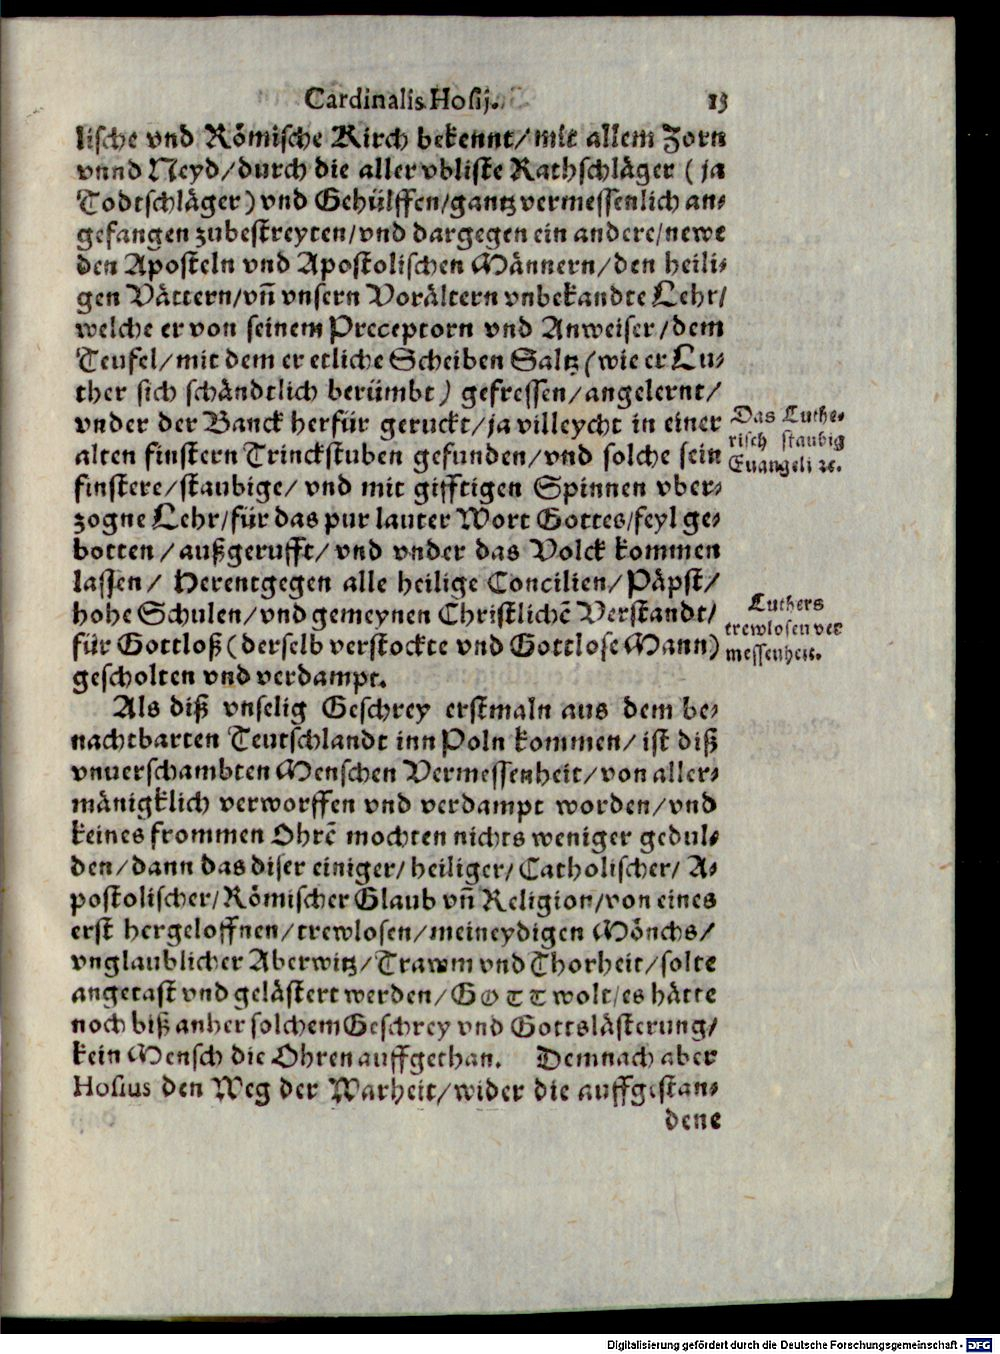 Cardinalis Hosij. 13
lische vnd Römische Kirch bekennt/ mit allem Zorn
vnnd Neyd/ durch die aller vbliste Rathschläger (ja
Todtschläger) vnd Gehülffen/ gantz vermessenlich an-
gefangen zubestreyten/ vnd dargegen ein andere/ newe
den Aposteln vnd Apostolischen Männern/ den heili-
gen Vättern/ vñ vnsern Vorältern vnbekandte Lehr/
welche er von seinem Preceptorn vnd Anweiser/ dem
Teufel/ mit dem er etliche Scheiben Saltz (wie er Lu-
ther sich schändtlich berümbt) gefressen/ angelernt/
vnder der Banck herfür geruckt/ ja villeycht in einer
alten finstern Trinckstuben gefunden/ vnd solche sein
finstere/ staubige/ vnd mit gifftigen Spinnen vber-
zogne Lehr/ für das pur lauter Wort Gottes/ feyl ge-
botten/ außgerufft/ vnd vnder das Volck kommen
lassen/ Herentgegen alle heilige Concilien/ Päpst/
hohe Schulen/ vnd gemeynen Christlichẽ Verstandt/
für Gottloß (derselb verstockte vnd Gottlose Mann)
gescholten vnd verdampt.
Das Luthe-
risch staubig
Euangeli ꝛc.
Luthers
trewlosen ver
messenheit.
Als diß vnselig Geschrey erstmaln aus dem be-
nachtbarten Teutschlandt inn Poln kommen/ ist diß
vnuerschambten Menschen Vermessenheit/ von aller-
mänigklich verworffen vnd verdampt worden/ vnd
keines frommen Ohrẽ mochten nichts weniger gedul-
den/ dann das diser einiger/ heiliger/ Catholischer/ A-
postolischer/ Römischer Glaub vñ Religion/ von eines
erst hergeloffnen/ trewlosen/ meineydigen Mönchs/
vnglaublicher Aberwitz/ Trawm vnd Thorheit/ solte
angetast vnd gelästert werden/ GOTT wolt/ es hätte
noch biß anher solchem Geschrey vnd Gottslästerung/
kein Mensch die Ohren auffgethan. Demnach aber
Hosius den Weg der Warheit/ wider die auffgestan-
dene
Digitalisierung gefördert durch die Deutsche Forschungsgemeinschaft - DFG